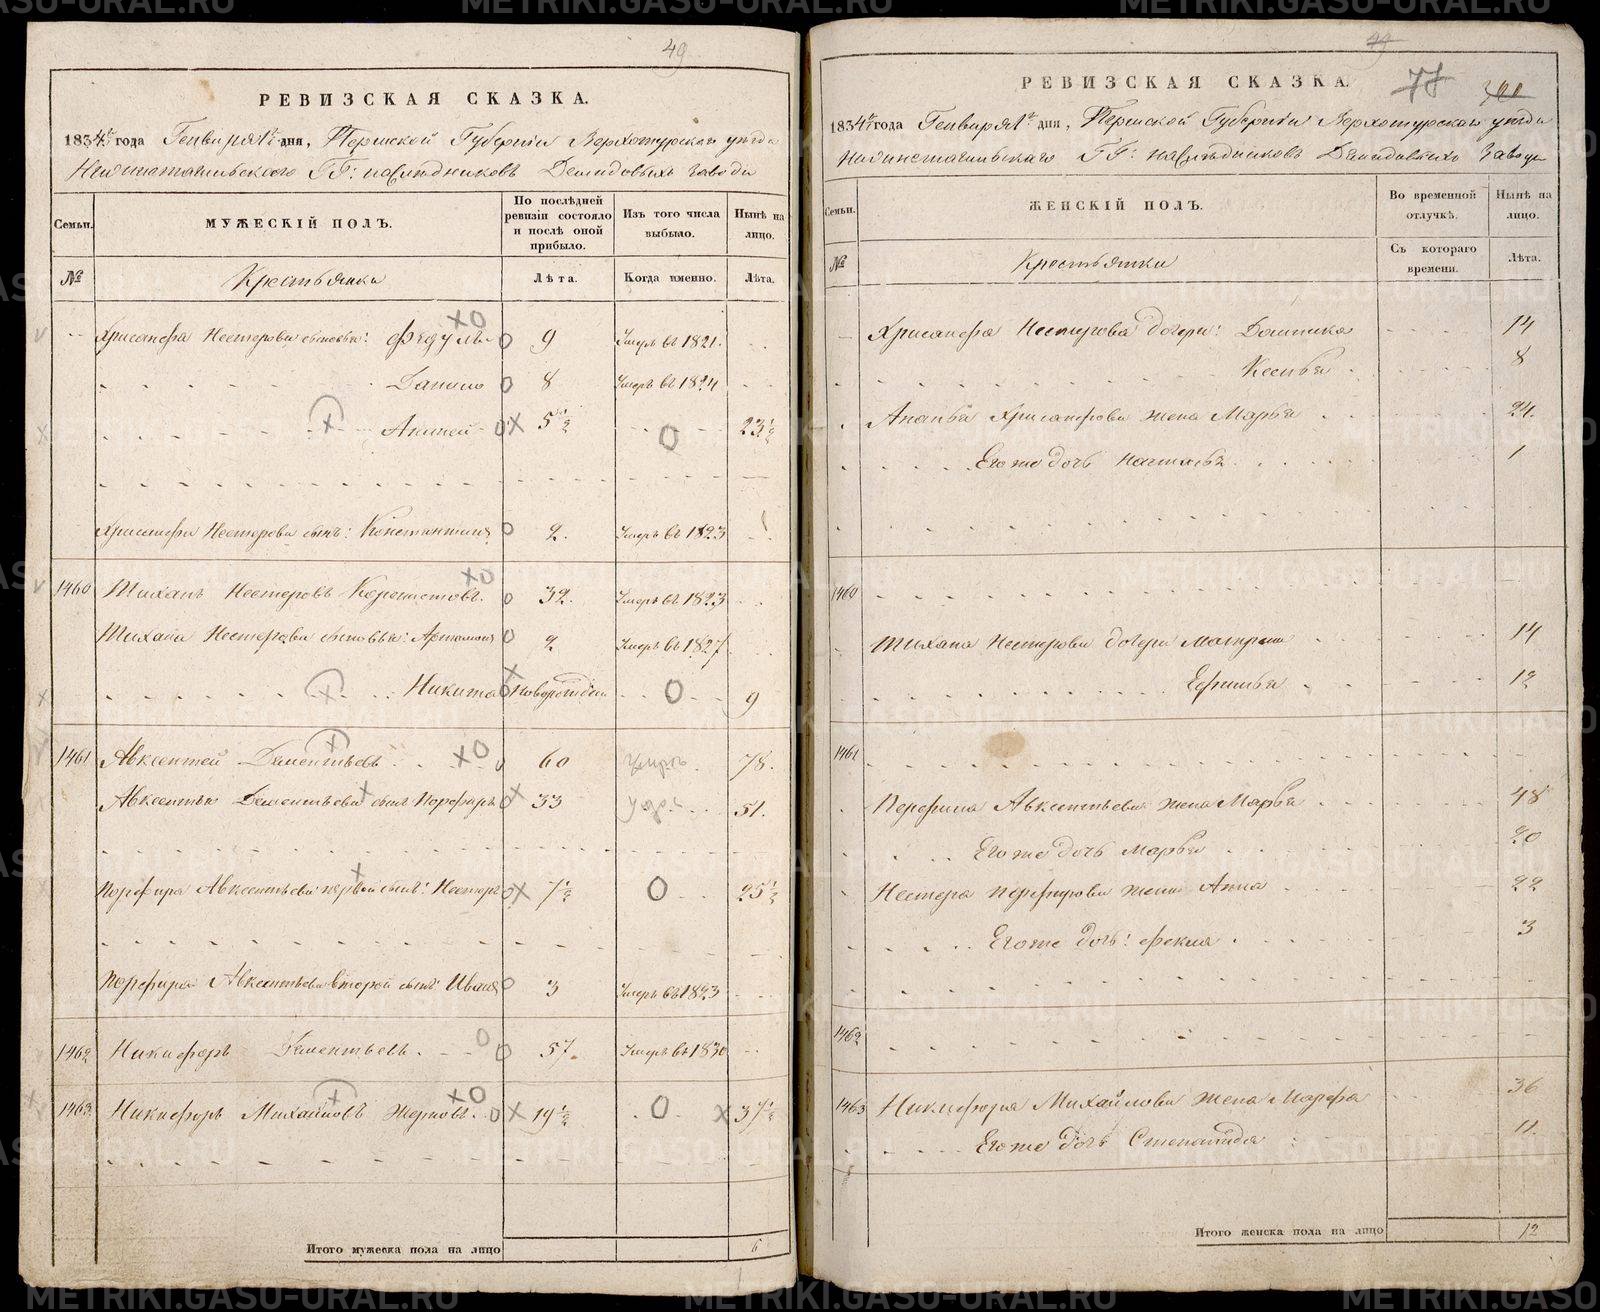 49
РЕВИЗСКАЯ СКАЗКА.
1834 года Генваря 1 дня, Пермской Губернии Верхотурскаго уезда
Нижнетагильскаго ГГ: наследниковъ Демидовыхъ завода
Семьи.
МУЖЕСКІЙ ПОЛЪ.
По послѣдней ревизіи состояло и послѣ оной прибыло.
Изъ того числа выбыло.
Нынѣ на лицо.
№
Крестьяне
Лѣта.
Когда именно.
Лѣта.
Хрисанфа Нестерова сыновья: Федулъ 9 Умеръ въ 1821
Данило 8 Умеръ въ 1824
Ананей 5 1/2 23 1/2
Хрисанфа Нестерова сынъ: Константинъ 2. Умеръ въ 1823
1460 Нестеровъ 32. Умеръ въ 1823
Нестерова сыновья: Артамонъ 2 Умеръ въ 1827
Никита новорожден 9
1461 Авксентей Дементьевъ 60 умеръ 78.
Авксентья Дементьева сынъ Порфиръ 33 51.
Порфира Авксентьева первой сынъ: Нестеръ 7 1/2 25 1/2
Порфира Авксентьева второй сынъ: Иванъ 3 Умеръ въ 1823
1462 Никифоръ Дементьевъ. 57. Умеръ въ 1830
1463 Никифоръ Михайловъ 19 1/2 37 1/2
Итого мужеска пола на лицо 6
49
77
РЕВИЗСКАЯ СКАЗКА.
1834 года Генваря 1 дня, Пермской Губернии Верхотурскаго уезда
Нижнетагильскаго ГГ: наследниковъ Демидовыхъ Завода
Семьи.
ЖЕНСКІЙ ПОЛЪ.
Во временной отлучкѣ.
Нынѣ на лицо.
№
Крестьянки
Съ котораго времени.
Лѣта.
Хрисанфа Нестерова дочери: Домника 14
Ксенья 8
Ананья Хрисанфова жена Марья 24.
Его же дочь Наталья 1
1460
Нестерова дочери Матрена 14
Ефимья 12
1461
Порфира Авксентьева жена Марья 48
Его же дочь Марья 20
Нестера Порфирова жена Анна 22
Его же дочь: Фекла 3
1462
1463 Никифора Михайлова жена Марфа 36
Его же дочь Степанида 11.
Итого женска пола на лицо 12
METRIKI.GASO-URAL.RU